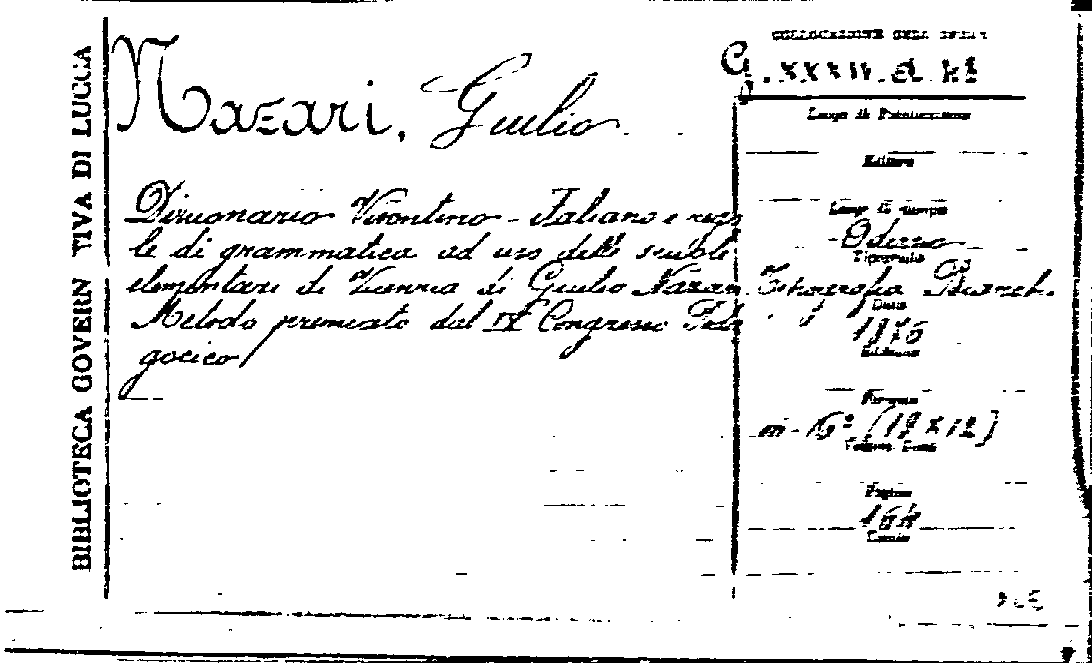 BIBLIOTECA GOVERN TIVA DI LUCCA
Nazari, Giulio
Dizionario Vicentino - Italiano e rego
le di grammatica ad uso delle scuole
elementari di Vicenza di Giulio Nazari
Metodo premiato dal IX Congresso Peda
gogico/
COLLOCAZIONE DELL' OPERA
G. XXXIV. a.
Luogo di Pubblicazione
Editore
Luogo di stampa
Oderzo
Tipografia
Tipografia Bianchi
Data
1876
Edizione
Formato
in-16° (17x12)
Volume
Pagine
164